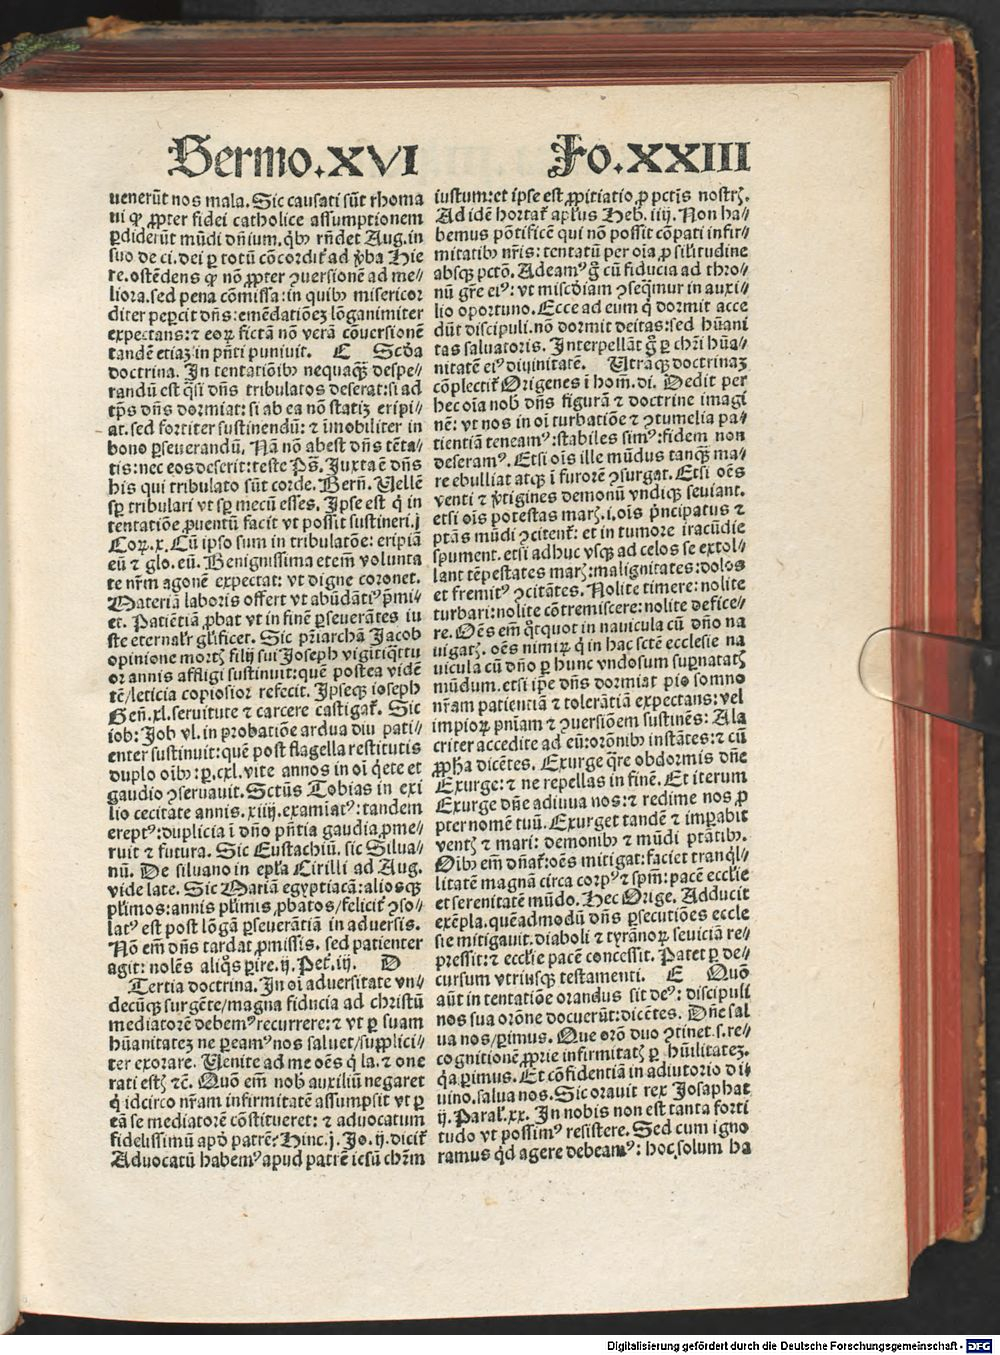 Sermo.XVI Fo.XXIII
uenerūt nos mala. Sic causati sūt rhoma
ni qꝫ ꝓpter fidei catholice assumptionem
ꝑdiderūt mūdi dn̄ium. qbꝫ rn̄det Aug. in
suo de ci. dei ꝑ totū cōcordit᷑ ad v̄ba Hie
re. ostēdens qꝫ nō ꝓpter ꝯuersionē ad me//
liora. sed pena cōmissa: in quibꝫ misericor
diter peꝑcit dn̄s: emēdatiōeꝫ lōganimiter
expectans: ⁊ eoꝝ fictā nō verā cōuersionē
tandē etiaꝫ in pn̄ti puniuit. C Scd̄a
doctrina. In tentatiōibꝫ nequaqꝫ despe//
randū est q̄si dn̄s tribulatos deserat: si ad
tp̄s dn̄s dormiat: si ab ea nō statiꝫ eripi//
at. sed fortiter sustinendū: ⁊ īmobiliter in
bono ꝑseuerandū. Nā nō abest dn̄s tēta//
tis: nec eos deserit: teste Ps̄. Iuxta ē dn̄s
his qui tribulato sūt corde. Bern̄. Uellē
sꝑ tribulari vt sꝑ mecū esses. Ipse est q̇ in
tentatiōe ꝓuentū facit vt possit sustineri. j
Coꝝ. x. Cū ipso sum in tribulatōe: eripiā
eū ⁊ glo. eū. Benignissima etem̄ volunta
te nr̄m agonē expectat: vt digne coronet.
Materiā laboris offert vt abūdātiꝰ p̄mi//
et. Patiētiā ꝓbat vt in finē ꝑseuerātes iu
ste eternalr̄ gl̄ificet. Sic pr̄iarchā Jacob
opinione mortꝭ filij sui Joseph vigitiq̄ttu
or annis affligi sustinuit: quē postea vidē
tē/leticia copiosior refecit. Ipseqꝫ ioseph
Gen̄. xl. seruitute ⁊ carcere castigat᷑. Sic
iob: Job vl. in probatiōe ardua diu pati//
enter sustinuit: quē post flagella restitutis
duplo oibꝫ: ꝑ. cxl. vite annos in oi q̇ete et
gaudio ꝯseruauit. Sctūs Tobias in exi
lio cecitate annis. xiiij. examiatꝰ: tandem
ereptꝰ: duplicia ī dn̄o pn̄tia gaudia ꝓme//
ruit ⁊ futura. Sic Eustachiū. sic Silua//
nū. De siluano in epl̄a Cirilli ad Aug.
vide late. Sic Mariā egyptiacā: aliosqꝫ
pl̄imos: annis pl̄imis ꝓbatos/felicit᷑ ꝯso//
latꝰ est post lōgā ꝑseuerātiā in aduersis.
Nō em̄ dn̄s tardat ꝓmissis. sed patienter
agit: nolēs aliq̊s ꝑire. ij. Pet᷑. iij. D
Tertia doctrina. In oi aduersitate vn//
decūqꝫ surgēte/magna fiducia ad christū
mediatorē debemꝰ recurrere: ⁊ vt ꝑ suam
hūanitateꝫ ne ꝑeamꝰ nos saluet/supplici//
ter exorare. Uenite ad me oēs q̇ la. ⁊ one
rati estꝭ ⁊c̄. Quō em̄ nobꝭ auxiliū negaret
q̇ idcirco nr̄am infirmitatē assumpsit vt ꝑ
eā se mediatorē cōstitueret: ⁊ aduocatum
fidelissimū apd̄ patrē? Hinc. j. Jo. ij. dicit᷑
Aduocatū habemꝰ apud patrē iesū chr̄m
iustum: et ipse est ꝓpitiatio ꝓ pctīs nostrꝭ.
Ad idē hortat᷑ apl̄us Heb. iiij. Non ha//
bemus pōtificē qui nō possit cōpati infir//
mitatibꝫ nr̄is: tentatū per oīa ꝓ sil̄itudine
absqꝫ pctō. Adeamꝰ g̊ cū fiducia ad thro//
nū gr̄e eiꝰ: vt misc̄diam ꝯseq̄mur in auxi//
lio oportuno. Ecce ad eum q̇ dormit acce
dūt discipuli. nō dormit deitas: sed hūani
tas saluatoris. Interpellāt g̊ ꝑ chr̄i hūa//
nitatē eiꝰ diuinitatē. Utrāqꝫ doctrinaꝫ
cōplectit᷑ Origenes ī hom̄. di. Dedit per
hec oīa nobꝭ dn̄s figurā ⁊ doctrine imagi
nē: vt nos in oi turbatiōe ⁊ ꝯtumelia pa//
tientiā teneamꝰ: stabiles simꝰ: fidem non
deseramꝰ. Etsi oīs ille mūdus tanqꝫ ma//
re ebulliat atqꝫ ī furorē ꝯsurgat. Etsi oēs
venti ⁊ v̄tigines demonū vndiqꝫ seuiant.
etsi oīs potestas marꝭ. i. oīs pn̄cipatus ⁊
ptās mūdi ꝯcitent᷑: et in tumore iracūdie
spument. etsi adhuc vsqꝫ ad celos se extol//
lant tēpestates marꝭ: malignitates: dolos
et fremitꝰ ꝯcitātes. Nolite timere: nolite
turbari: nolite cōtremiscere: nolite defice//
re. Oēs em̄ qtquot in nauicula cū dn̄o na
uigatꝭ. oēs nimiꝝ q̇ in hac sctē ecclesie na
uicula cū dn̄o ꝑ hunc vndosum suꝑnatatꝭ
mūdum. etsi ip̄e dn̄s dormiat pio somno
nr̄am patientiā ⁊ tolerātiā expectans: vel
impioꝝ pn̄iam ⁊ ꝯuersiōem sustinēs: Ala
criter accedite ad eū: orōnibꝫ instātes: ⁊ cū
ꝓph̄a dicētes. Exurge q̄re obdormis dn̄e
Exurge: ⁊ ne repellas in finē. Et iterum
Exurge dn̄e adiuua nos: ⁊ redime nos ꝓ
pter nomē tuū. Exurget tandē ⁊ imꝑabit
ventꝭ ⁊ mari: demonibꝫ ⁊ mūdi ptātibꝫ.
Oibꝫ em̄ dn̄at᷑: oēs mitigat: faciet tranq̇l//
litatē magnā circa corpꝰ ⁊ spm̄: pacē eccl̄ie
et serenitatē mūdo. Hec Orige. Adducit
exēpla. quēadmodū dn̄s ꝑsecutiōes eccle
sie mitigauit. diaboli ⁊ tyrānoꝝ seuiciā re//
pressit: ⁊ eccl̄ie pacē concessit. Patet ꝑ de//
cursum vtriusqꝫ testamenti. E Quō
aūt in tentatiōe orandus sit deꝰ: discipuli
nos sua orōne docuerūt: dicētes. Dn̄e sal
ua nos/ꝑimus. Que orō duo ꝯtinet. s. re//
cognitionē ꝓprie infirmitatꝭ ꝑ hūilitateꝫ.
q̇a ꝑimus. Et cōfidentiā in adiutorio di//
uino. salua nos. Sic orauit rex Josaphat
ij. Paral̄. xx. In nobis non est tanta forti
tudo vt possimꝰ resistere. Sed cum igno
ramus qd̄ agere debeamꝰ: hoc solum ha
Digitalisierung gefördert durch die Deutsche Forschungsgemeinschaft - DFG